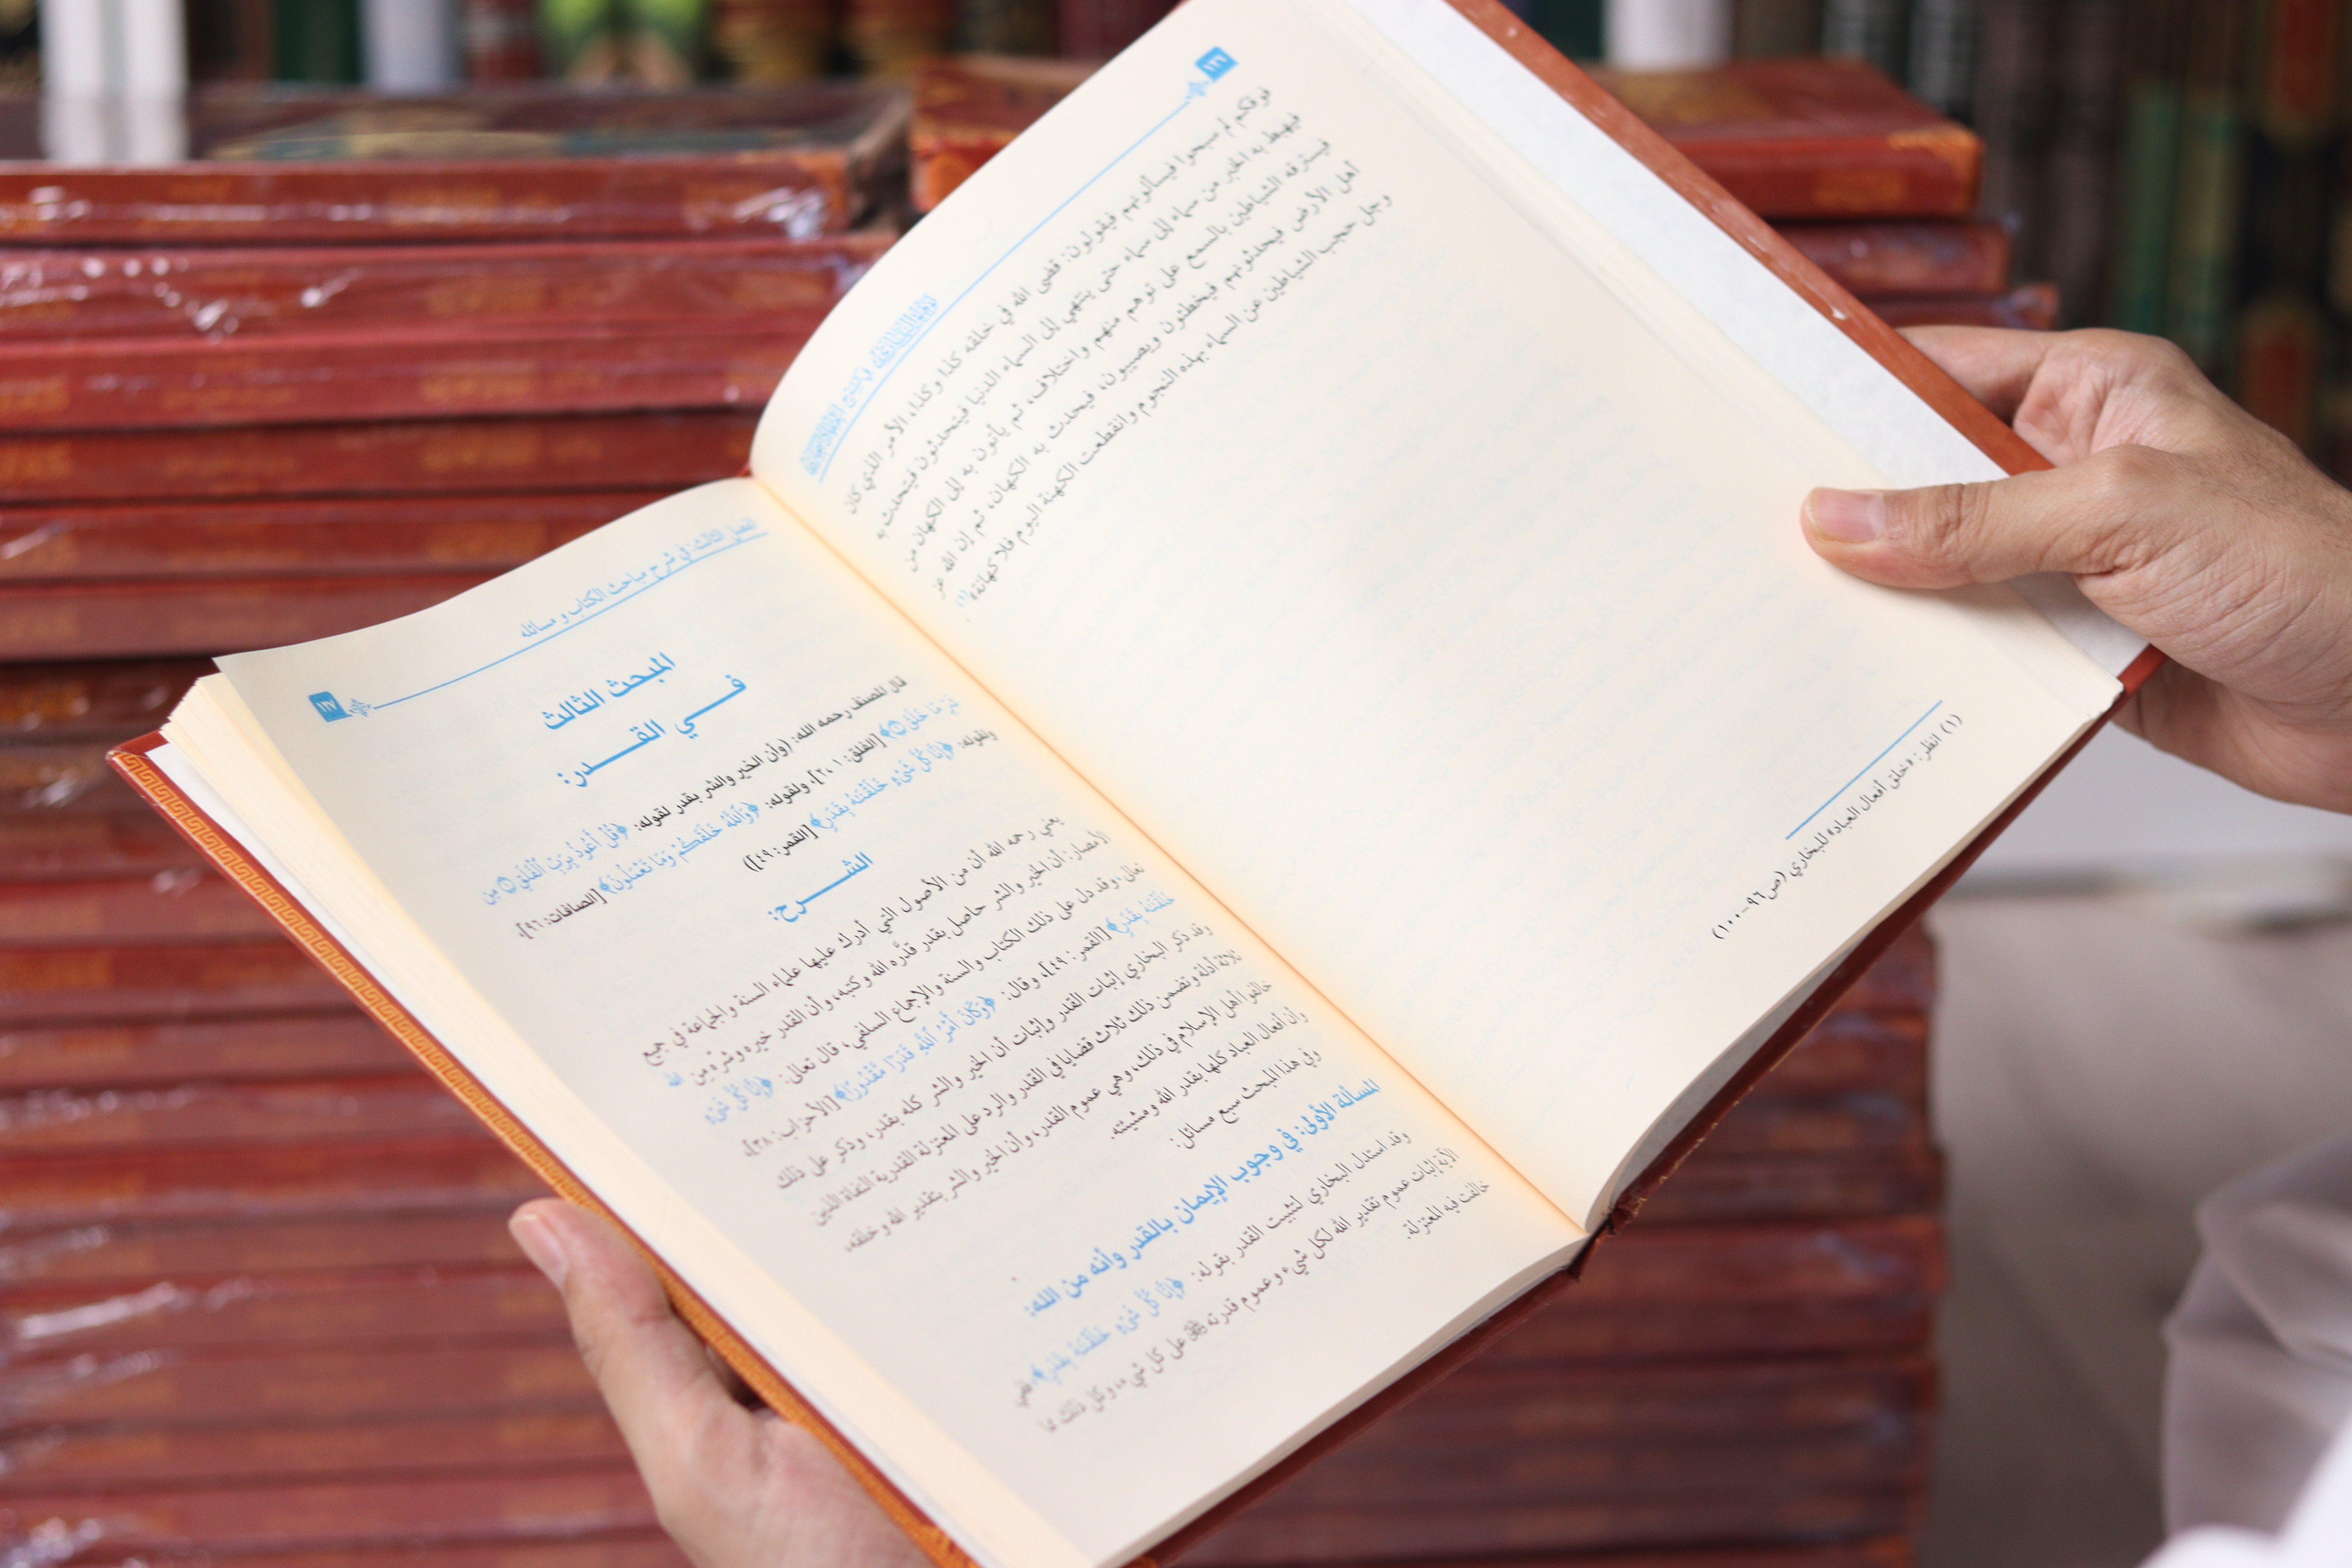 فوقكم لم سبحوا فيسألونهم فيقولون: قضى الله في خلقه كذا وكذا، الأمر الذي كان
فيهبط به الخبر من سماء إلى سماء حتى ينتهي إلى السماء الدنيا فيتحدثون فيتحدث به
فيسترقه الشياطين بالسمع على توهم منهم واختلاف، ثم يأتون به إلى الكهان من
أهل الأرض فيحدثونهم فيخطئون ويصيبون، فيحدث به الكهان، ثم إن الله عز
وجل حجب الشياطين عن السماء بهذه النجوم وانقطعت الكهنة اليوم فلا كهانة»(١)
(١) انظر: «خلق أفعال العباد» للبخاري (ص٩٦-١٠٠)
الفصل الثالث: في شرح مباحث الكتاب ومسائله
١٢٧
المبحث الثالث
فـي القـدر:
قال المصنف رحمه الله: (وأن الخير والشر بقدر لقوله: ﴿قُلْ أَعُوذُ بِرَبِّ ٱلْفَلَقِ ۝ مِن
شَرِّ مَا خَلَقَ ۝﴾ [الفلق: ١، ٢]، ولقوله: ﴿وَٱللَّهُ خَلَقَكُمْ وَمَا تَعْمَلُونَ﴾ [الصافات: ٩٦]،
ولقوله: ﴿إِنَّا كُلَّ شَىْءٍ خَلَقْنَٰهُ بِقَدَرٍ﴾ [القمر: ٤٩])
الشـرح:
يعني رحمه الله أن من الأصول التي أدرك عليها علماء السنة والجماعة في جميع
الأمصار: أن الخير والشر حاصل بقدر قدَّره الله وكتبه، وأن القدر خيره وشره من الله
تعالى، وقد دل على ذلك الكتاب والسنة والإجماع السلفي، قال تعالى: ﴿إِنَّا كُلَّ شَىْءٍ
خَلَقْنَٰهُ بِقَدَرٍ﴾ [القمر: ٤٩]، وقال: ﴿وَكَانَ أَمْرُ ٱللَّهِ قَدَرًا مَّقْدُورًا﴾ [الأحزاب: ٣٨]،
وقد ذكر البخاري إثبات القدر وإثبات أن الخير والشر كله بقدر، وذكر على ذلك
ثلاثة أدلة وتضمن ذلك ثلاث قضايا في القدر والرد على المعتزلة القدرية النفاة الذين
خالفوا أهل الإسلام في ذلك، وهي عموم القدر، وأن الخير والشر بتقدير الله وخلقه،
وأن أفعال العباد كلها بقدر الله ومشيئته.
وفي هذا المبحث سبع مسائل:
المسألة الأولى: في وجوب الإيمان بالقدر وأنه من الله:
وقد استدل البخاري لتثبيت القدر بقوله: ﴿إِنَّا كُلَّ شَىْءٍ خَلَقْنَٰهُ بِقَدَرٍ﴾، ففي
الآية إثبات عموم تقدير الله لكل شيء وعموم قدرته على كل شيء، وكل ذلك مما
خالفت فيه المعتزلة.